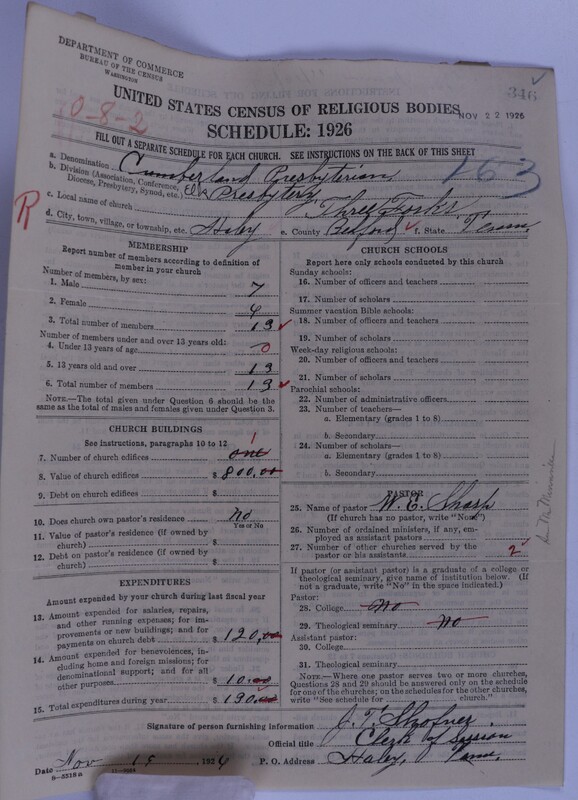 DEPARTMENT OF COMMERCE
BUREAU OF THE CENSUS
WASHINGTON
UNITED STATES CENSUS OF RELIGIOUS BODIES
NOV 22 1926
0-8-2
SCHEDULE: 1926
FILL OUT A SEPARATE SCHEDULE FOR EACH CHURCH. SEE INSTRUCTIONS ON THE BACK OF THIS SHEET
163
a. Denomination Cumberland Presbyterian
b. Division (Association, Conference, Diocese, Presbytery, Synod, etc.) Elk Presbytery
c. Local name of church Three Forks
R
d. City, town, village, or township, etc. Haley e. County Bedford f. State Tenn.
MEMBERSHIP
Report number of members according to definition of member in your church
Number of members, by sex:
1. Male 7
2. Female 6
3. Total number of members 13
Number of members under and over 13 years old:
4. Under 13 years of age 0
5. 13 years old and over 13
6. Total number of members 13
NOTE.—The total given under Question 6 should be the same as the total of males and females given under Question 3.
CHURCH BUILDINGS
See instructions, paragraphs 10 to 12
1
7. Number of church edifices one
8. Value of church edifices $ 800.00
9. Debt on church edifices $
10. Does church own pastor's residence No
Yes or No
11. Value of pastor's residence (if owned by church) $
12. Debt on pastor's residence (if owned by church) $
EXPENDITURES
Amount expended by your church during last fiscal year
13. Amount expended for salaries, repairs, and other running expenses; for improvements or new buildings; and for payments on church debt $ 120.00
14. Amount expended for benevolences, including home and foreign missions; for denominational support; and for all other purposes $ 10.00
15. Total expenditures during year $ 130.00
CHURCH SCHOOLS
Report here only schools conducted by this church
Sunday schools:
16. Number of officers and teachers
17. Number of scholars
Summer vacation Bible schools:
18. Number of officers and teachers
19. Number of scholars
Week-day religious schools:
20. Number of officers and teachers
21. Number of scholars
Parochial schools:
22. Number of administrative officers
23. Number of teachers—
a. Elementary (grades 1 to 8)
b. Secondary
24. Number of scholars—
a. Elementary (grades 1 to 8)
b. Secondary
PASTOR
25. Name of pastor W. E. Sharp
(If church has no pastor, write "None")
26. Number of ordained ministers, if any, employed as assistant pastors
27. Number of other churches served by the pastor or his assistants 2
If pastor (or assistant pastor) is a graduate of a college or theological seminary, give name of institution below. (If not a graduate, write "No" in the space indicated.)
Pastor:
28. College No
29. Theological seminary No
Assistant pastor:
30. College
31. Theological seminary
NOTE.—Where one pastor serves two or more churches, Questions 28 and 29 should be answered only on the schedule for one of the churches; on the schedules for the other churches, write "See schedule for church."
Signature of person furnishing information J. T. Shofner
Official title Clerk of Session
Date Nov 19, 1926 P. O. Address Haley, Tenn.
8-5518a